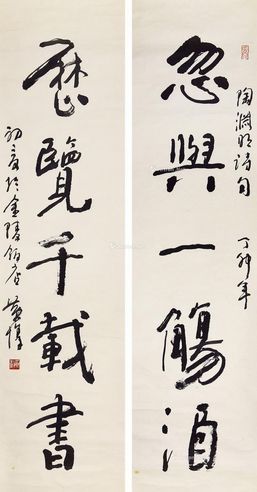 忽與一觴酒
陶淵明詩句
丁卯年
歷覽千載書
初夏於金陵